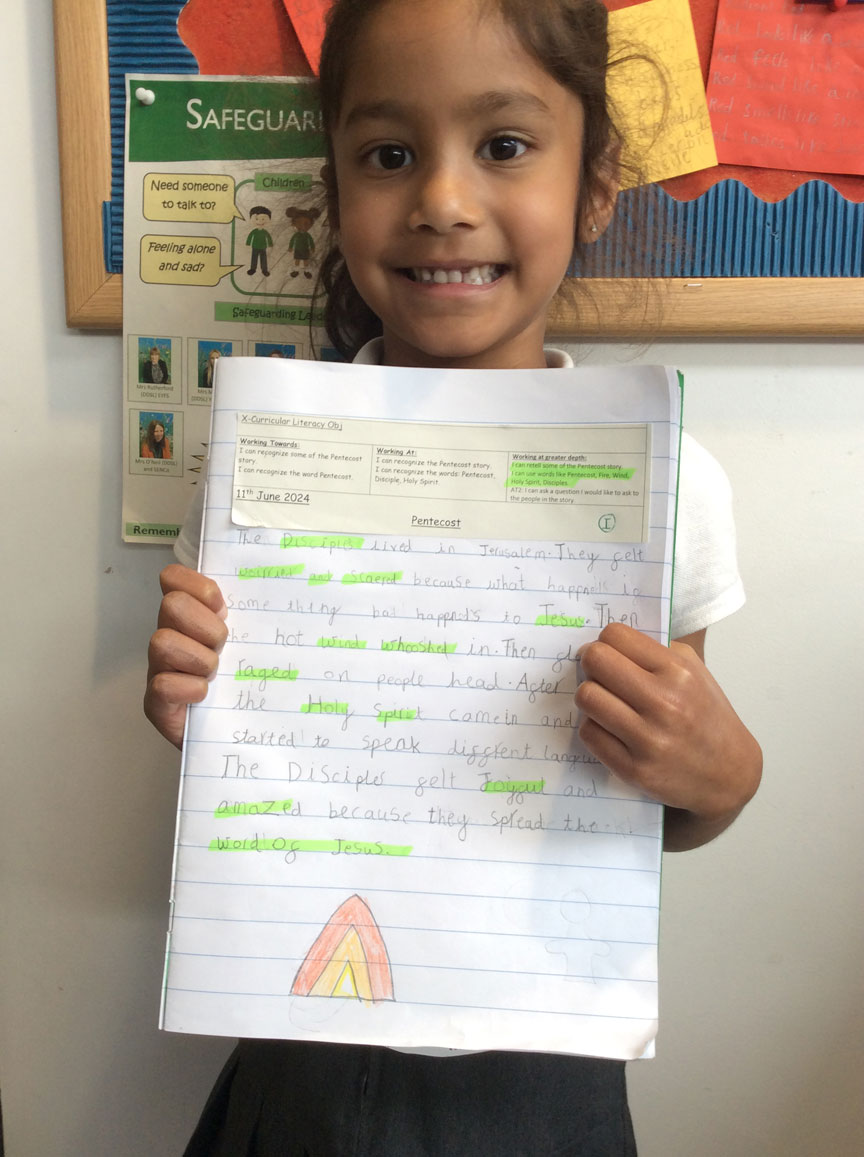 SAFEGUARD
Need someone
to talk to?
Children
Feeling alone
and sad?
Safeguarding
Mrs Rutherford
(DDSL) EYFS
(DDSL)
and SENCo
Rememb
X-Curricular Literacy Obj
Working Towards:
I can recognize some of the Pentecost
story.
I can recognize the word Pentecost.
Working At:
I can recognize the Pentecost story.
I can recognize the words: Pentecost,
Disciple, Holy Spirit.
Working at greater depth:
I can retell some of the Pentecost story.
I can use words like Pentecost, Fire, Wind,
Holy Spirit, Disciples.
AT2: I can ask a question I would like to ask to
the people in the story.
11th June 2024
Pentecost
I
The Disciples lived in Jerusalem. They felt
worried and scaerd because what happneds is
some thing bad happneds to Jesus. Then
the hot wind whooshed in. Then
raged on people head. After
the Holy Spirit came in and
started to speak diffrent
The Disciples felt Joyful and
amazed because they spread the
word of Jesus.